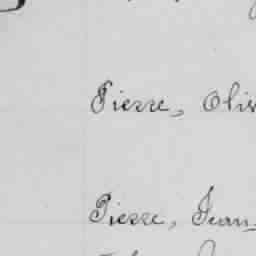 Pierre, Oliv
Pierre, Jean